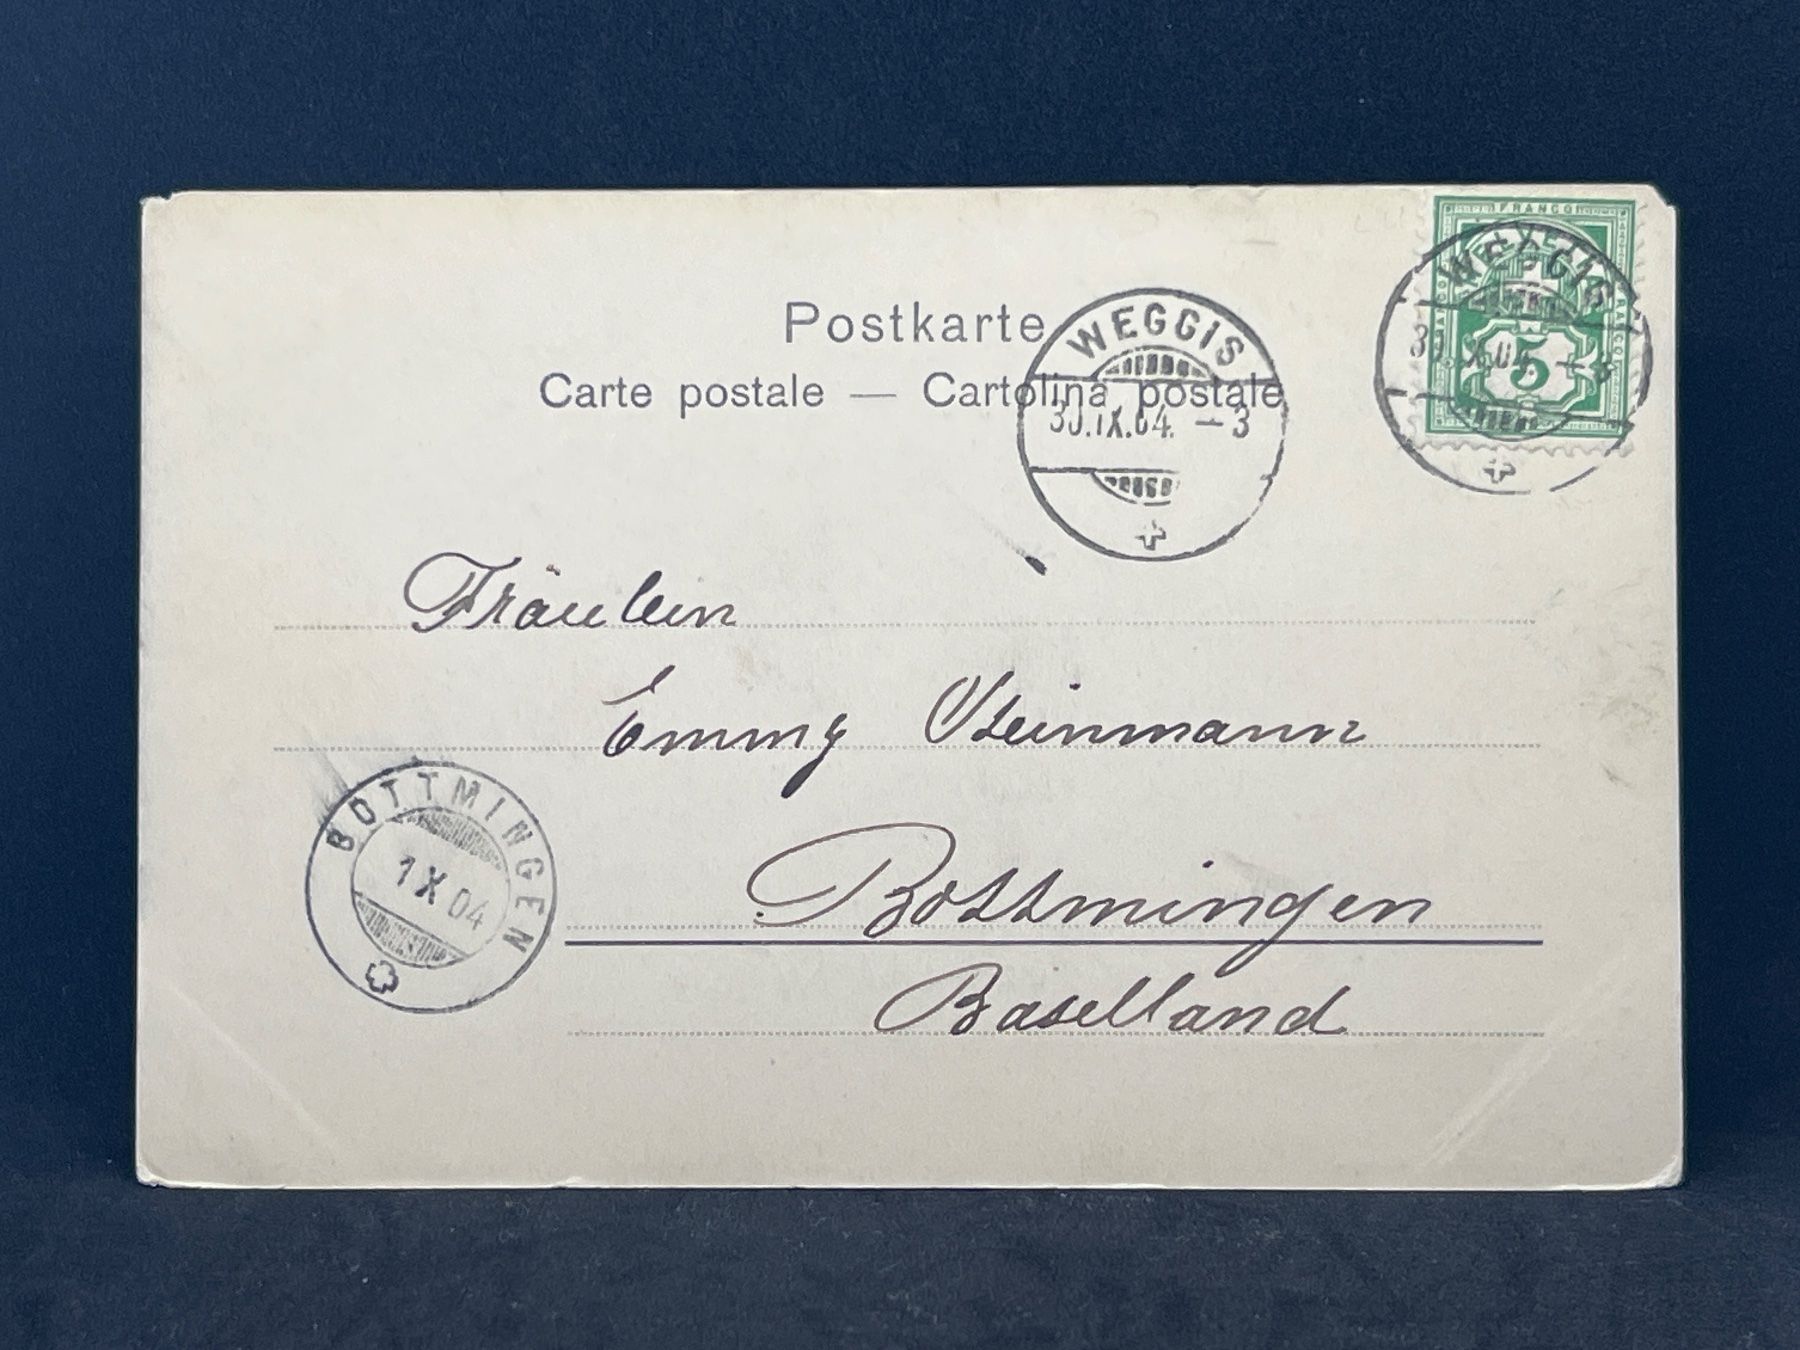 FRANCO
HELVETIA
FRANCO
5
WEGGIS
30.IX.04. -3
Postkarte
Carte postale — Cartolina postale
WEGGIS
30.IX.04. -3
Fräulein
Emmy Steinmann
BOTTMINGEN
1 X 04
Bottmingen
Baselland